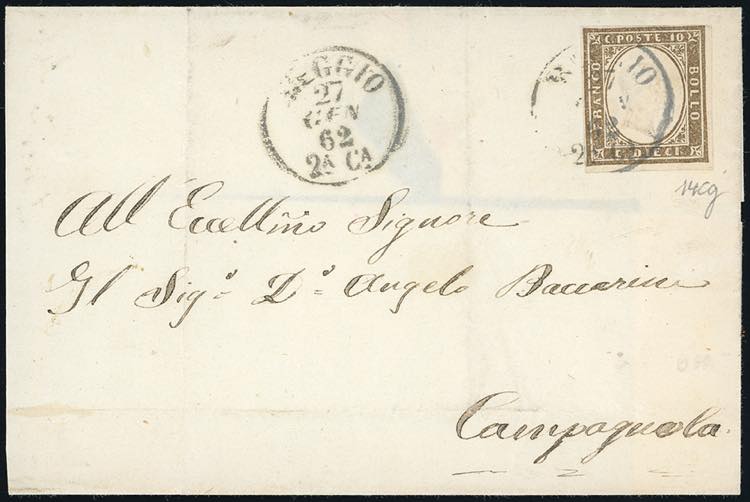 REGGIO
27
GEN
62
2A CA
C. POSTE 10
FRANCO
BOLLO
C. DIECI
14Cg
All Eccellmo Signore
Il Sigr Dr Angelo Baccarini
Campagnola